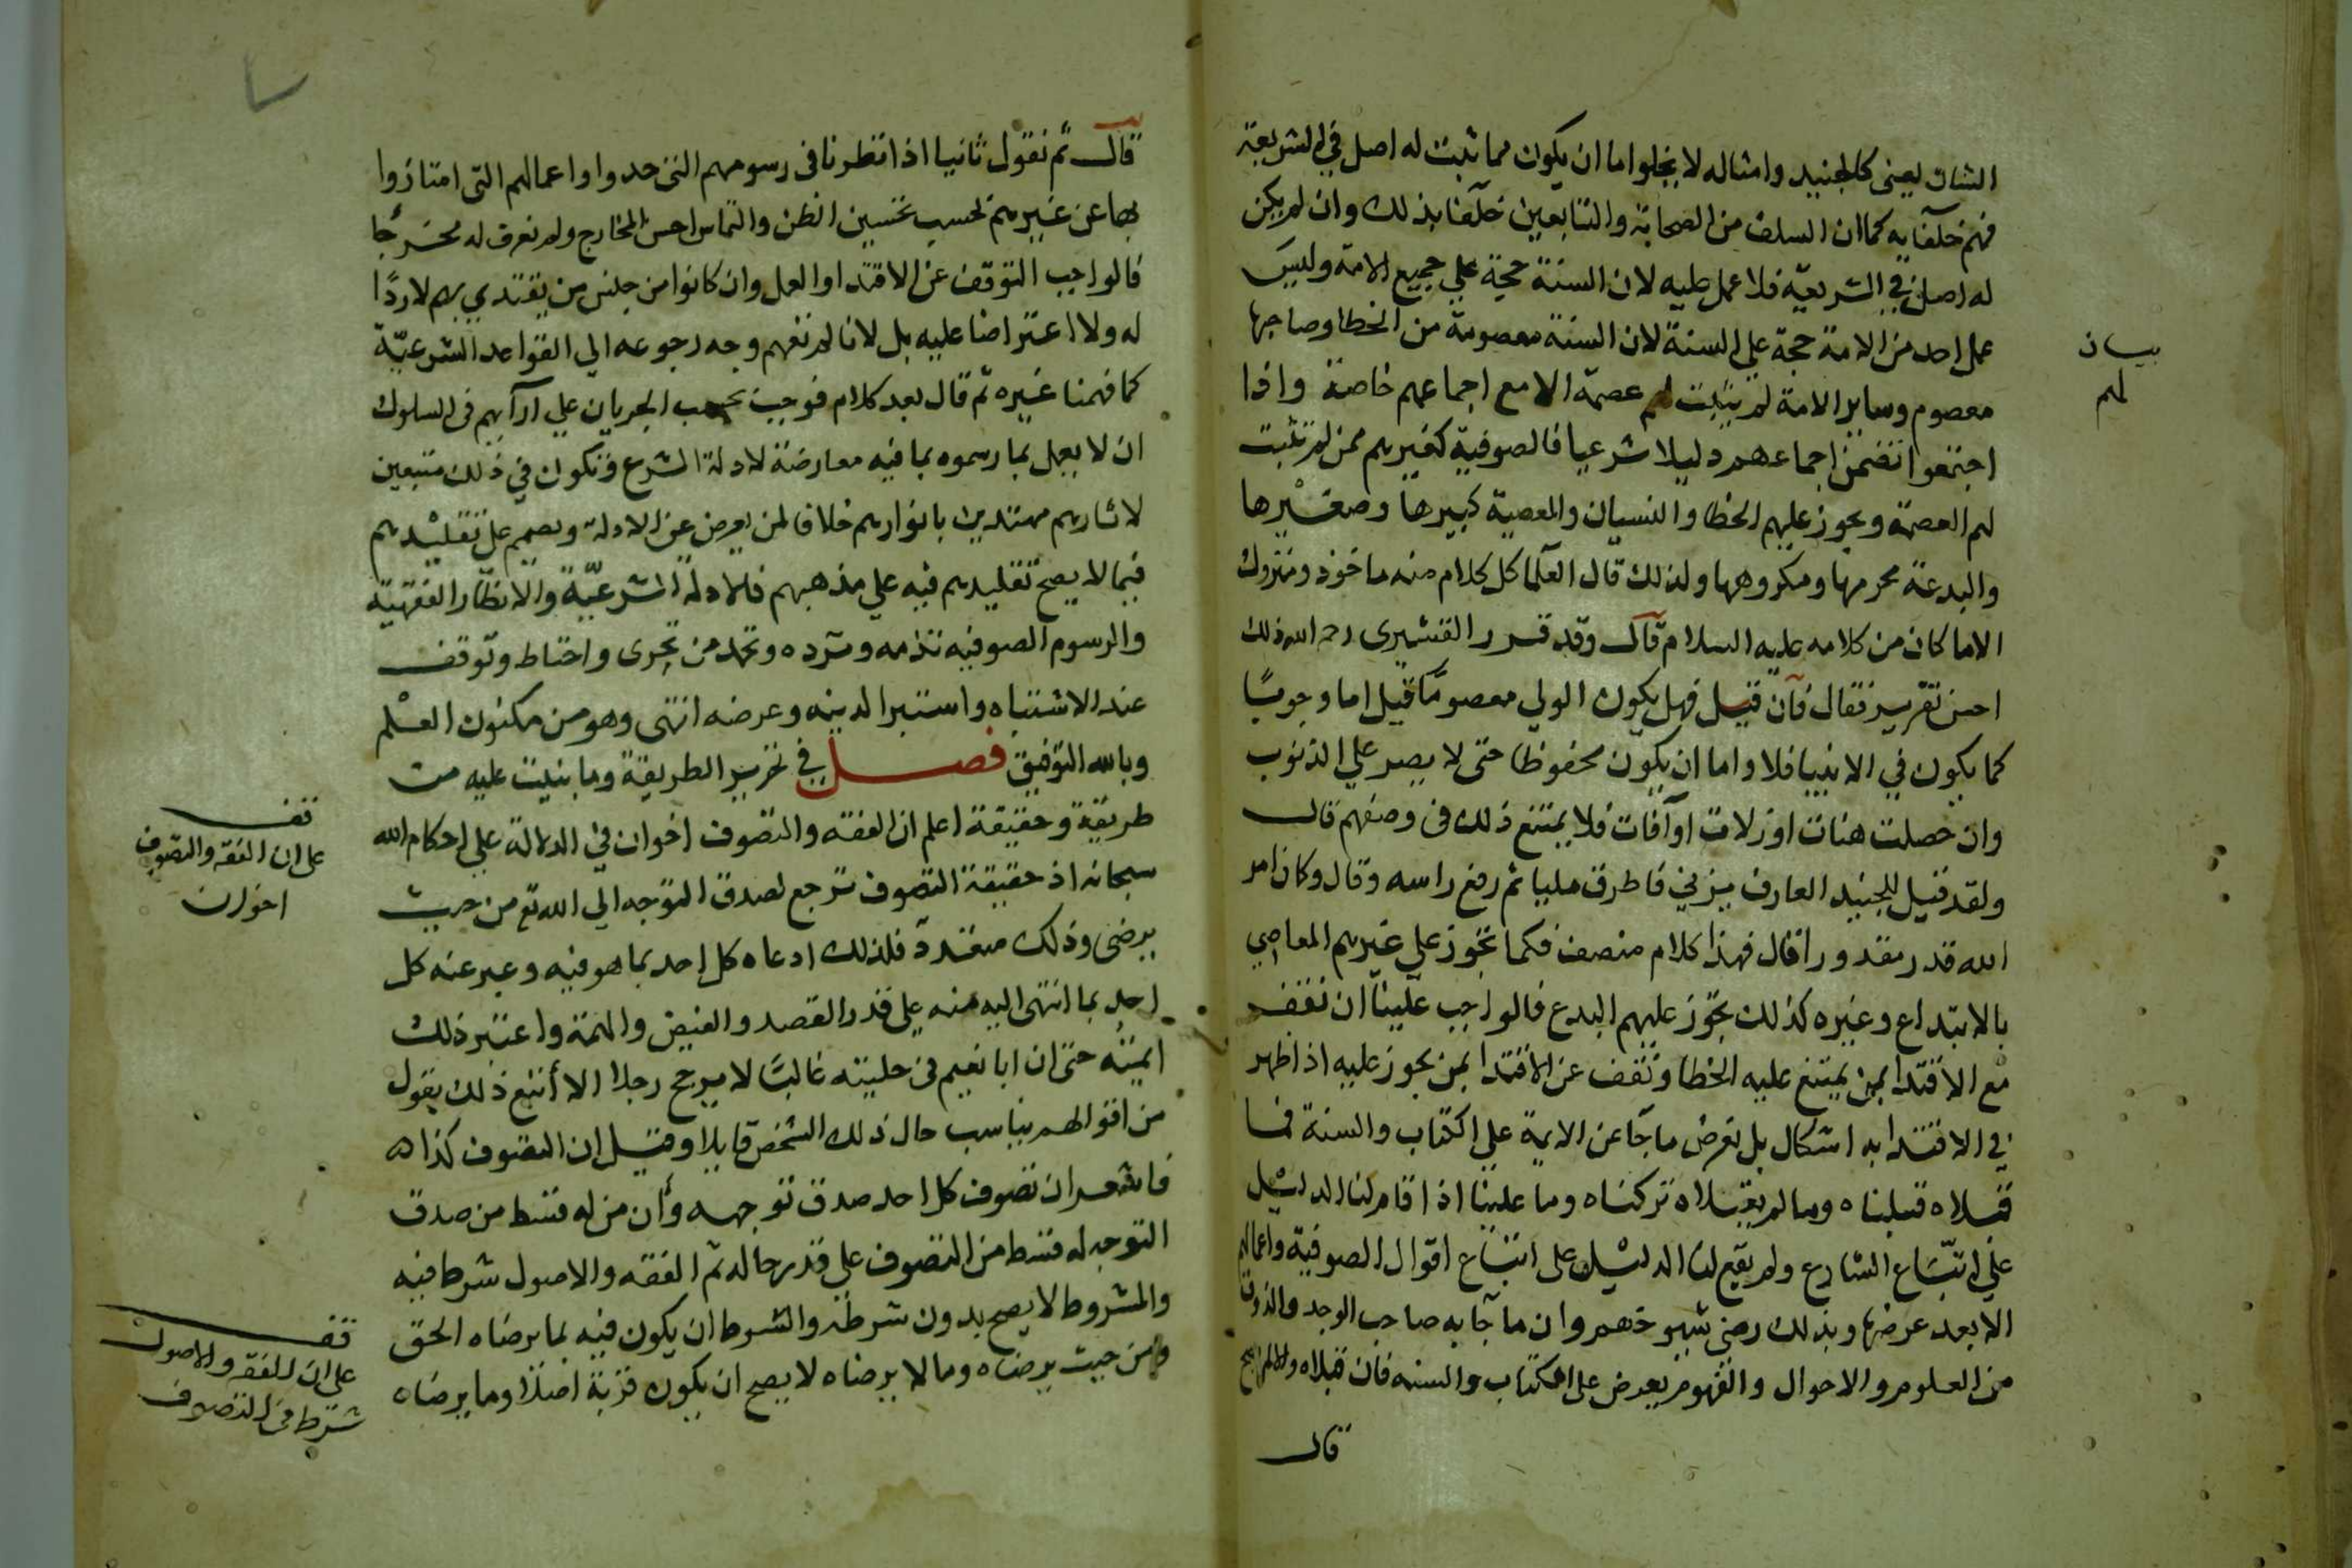 الشان يعنى كالجنيد وامثاله لا يخلوا اما ان يكون مما ثبت له اصل في الشريعة
فهم خلقا به كما ان السلف من الصحابة والتابعين خلقا بذلك وان لم يكن
له اصل في الشريعة فلا عمل عليه لان السنة حجة علي جميع الامة وليس
عمل احد من الامة حجة علي السنة لان السنة معصومة من الخطا وصاحبها
معصوم وساير الامة لم يثبت لهم عصمة الا مع اجماعهم خاصة واذا
اجتمعوا تضمن اجماعهم دليلا شرعيا فالصوفية كغيرهم ممن لم تثبت
لهم العصمة ويجوز عليهم الخطا والنسيان والمعصية كبيرها وصغيرها
والبدعة محرمها ومكروهها ولذلك قال العلما كل كلام منه ماخوذ ومتروك
الا ما كان من كلامه عليه السلام قال وقد قرر القشيرى رحمه الله ذلك
احسن تقرير فقال فان قيل فهل يكون الولي معصوما قيل اما وجوبا
كما يكون في الانبيا فلا واما ان يكون محفوظا حتى لا يصر علي الذنوب
وان حصلت هنات او زلات او آفات فلا يمتنع ذلك فى وصفهم قال
ولقد قيل للجنيد العارف يزني فاطرق مليا ثم رفع راسه وقال وكان امر
الله قدر مقدورا فقال فهذا كلام منصف فكما تجوز علي غيرهم المعاصي
بالابتداع وغيره كذلك تجوز عليهم البدع فالواجب علينا ان نقف
مع الاقتدا بمن يمتنع عليه الخطا ونقف عن الاقتدا بمن يجوز عليه اذا ظهر
في الاقتدا به اشكال بل نعرض ما جآ عن الايمة علي الكتاب والسنة فما
قبلاه قبلناه وما لم يقبلاه تركناه وما علينا اذا قام لنا الدليل
علي اتباع الشارع ولم يقم لنا الدليل على اتباع اقوال الصوفية واعمالهم
الا بعد عرضها وبذلك رضى شيوخهم وان ما جآ به صاحب الوجد والذوق
من العلوم والاحوال والفهوم يعرض على الكتاب والسنه فان قبلاه والا لم يصح
قال
بيان
لهم
قال ثم نقول ثانيا اذا نظرنا فى رسومهم التى حدوا واعمالهم التى امتازوا
بها عن غيرهم بحسب تحسين الظن والتماس احسن المخارج ولم نعرف له مخرجا
فالواجب التوقف عن الاقتدا والعمل وان كانوا من جنس من يقتدي بهم لا ردا
له ولا اعتراضا عليه بل لانا لم نفهم وجه رجوعه الي القواعد الشرعية
كما فهمنا غيره ثم قال بعد كلام فوجب بحسب الجريان علي آرآيهم فى السلوك
ان لا يعمل بما رسموه بما فيه معارضة لادلة الشرع ونكون في ذلك متبعين
لاثارهم مهتدين بانوارهم خلافا لمن يعرض عن الادلة ويصمم على تقليدهم
فيما لا يصح تقليدهم فيه علي مذهبهم فالادلة الشرعية والانظار الفقهية
والرسوم الصوفيه تذمه وترده وتحمد من تحرى واحتاط وتوقف
عند الاشتباه واستبرا لدينه وعرضه انتهى وهو من مكنون العلم
وبالله التوفيق فصل في تحرير الطريقة وما بنيت عليه من
طريقة وحقيقة اعلم ان الفقه والتصوف اخوان في الدلالة علي احكام الله
سبحانه اذ حقيقة التصوف ترجع لصدق التوجه الي الله تع من حيث
يرضى وذلك متعدد فلذلك ادعاه كل احد بما هو فيه وعبر عنه كل
احد بما انتهى اليه منه علي قدر القصد والفيض والهمة واعتبر ذلك
ايمته حتى ان ابا نعيم فى حليته غالبا لا يرجح رجلا الا أتبع ذلك بقول
من اقوالهم يناسب حال ذلك الشخص قايلا وقيل ان التصوف كذا
فاشعر ان تصوف كل احد صدق توجهه وأن من له قسط من صدق
التوجه له قسط من التصوف علي قدر حاله ثم الفقه والاصول شرط فيه
والمشروط لا يصح بدون شرطه والشرط ان يكون فيه بما يرضاه الحق
ومن حيث يرضاه وما لا يرضاه لا يصح ان يكون قربة اصلا وما يرضاه
قف
على ان الفقه والتصوف
اخوان
قف
على ان الفقه والاصول
شرط فى التصوف